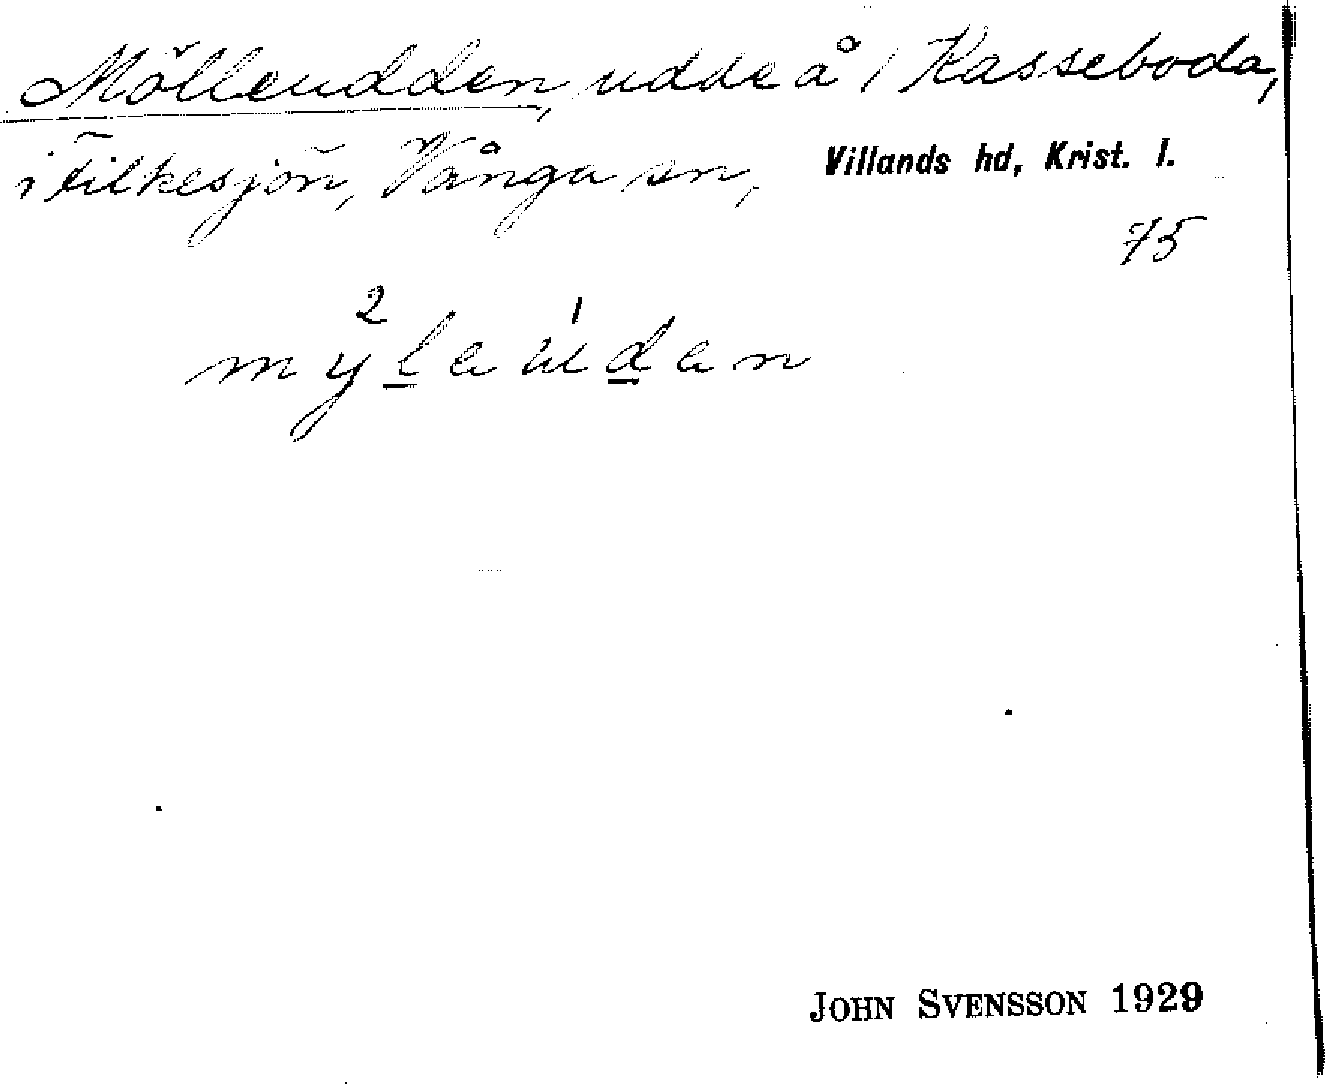 Mölleudden, udde å / Kasseboda,
i Filkesjön, Vånga sn, Villands hd, Krist. l.
75
2 1
mylaudan
JOHN SVENSSON 1929